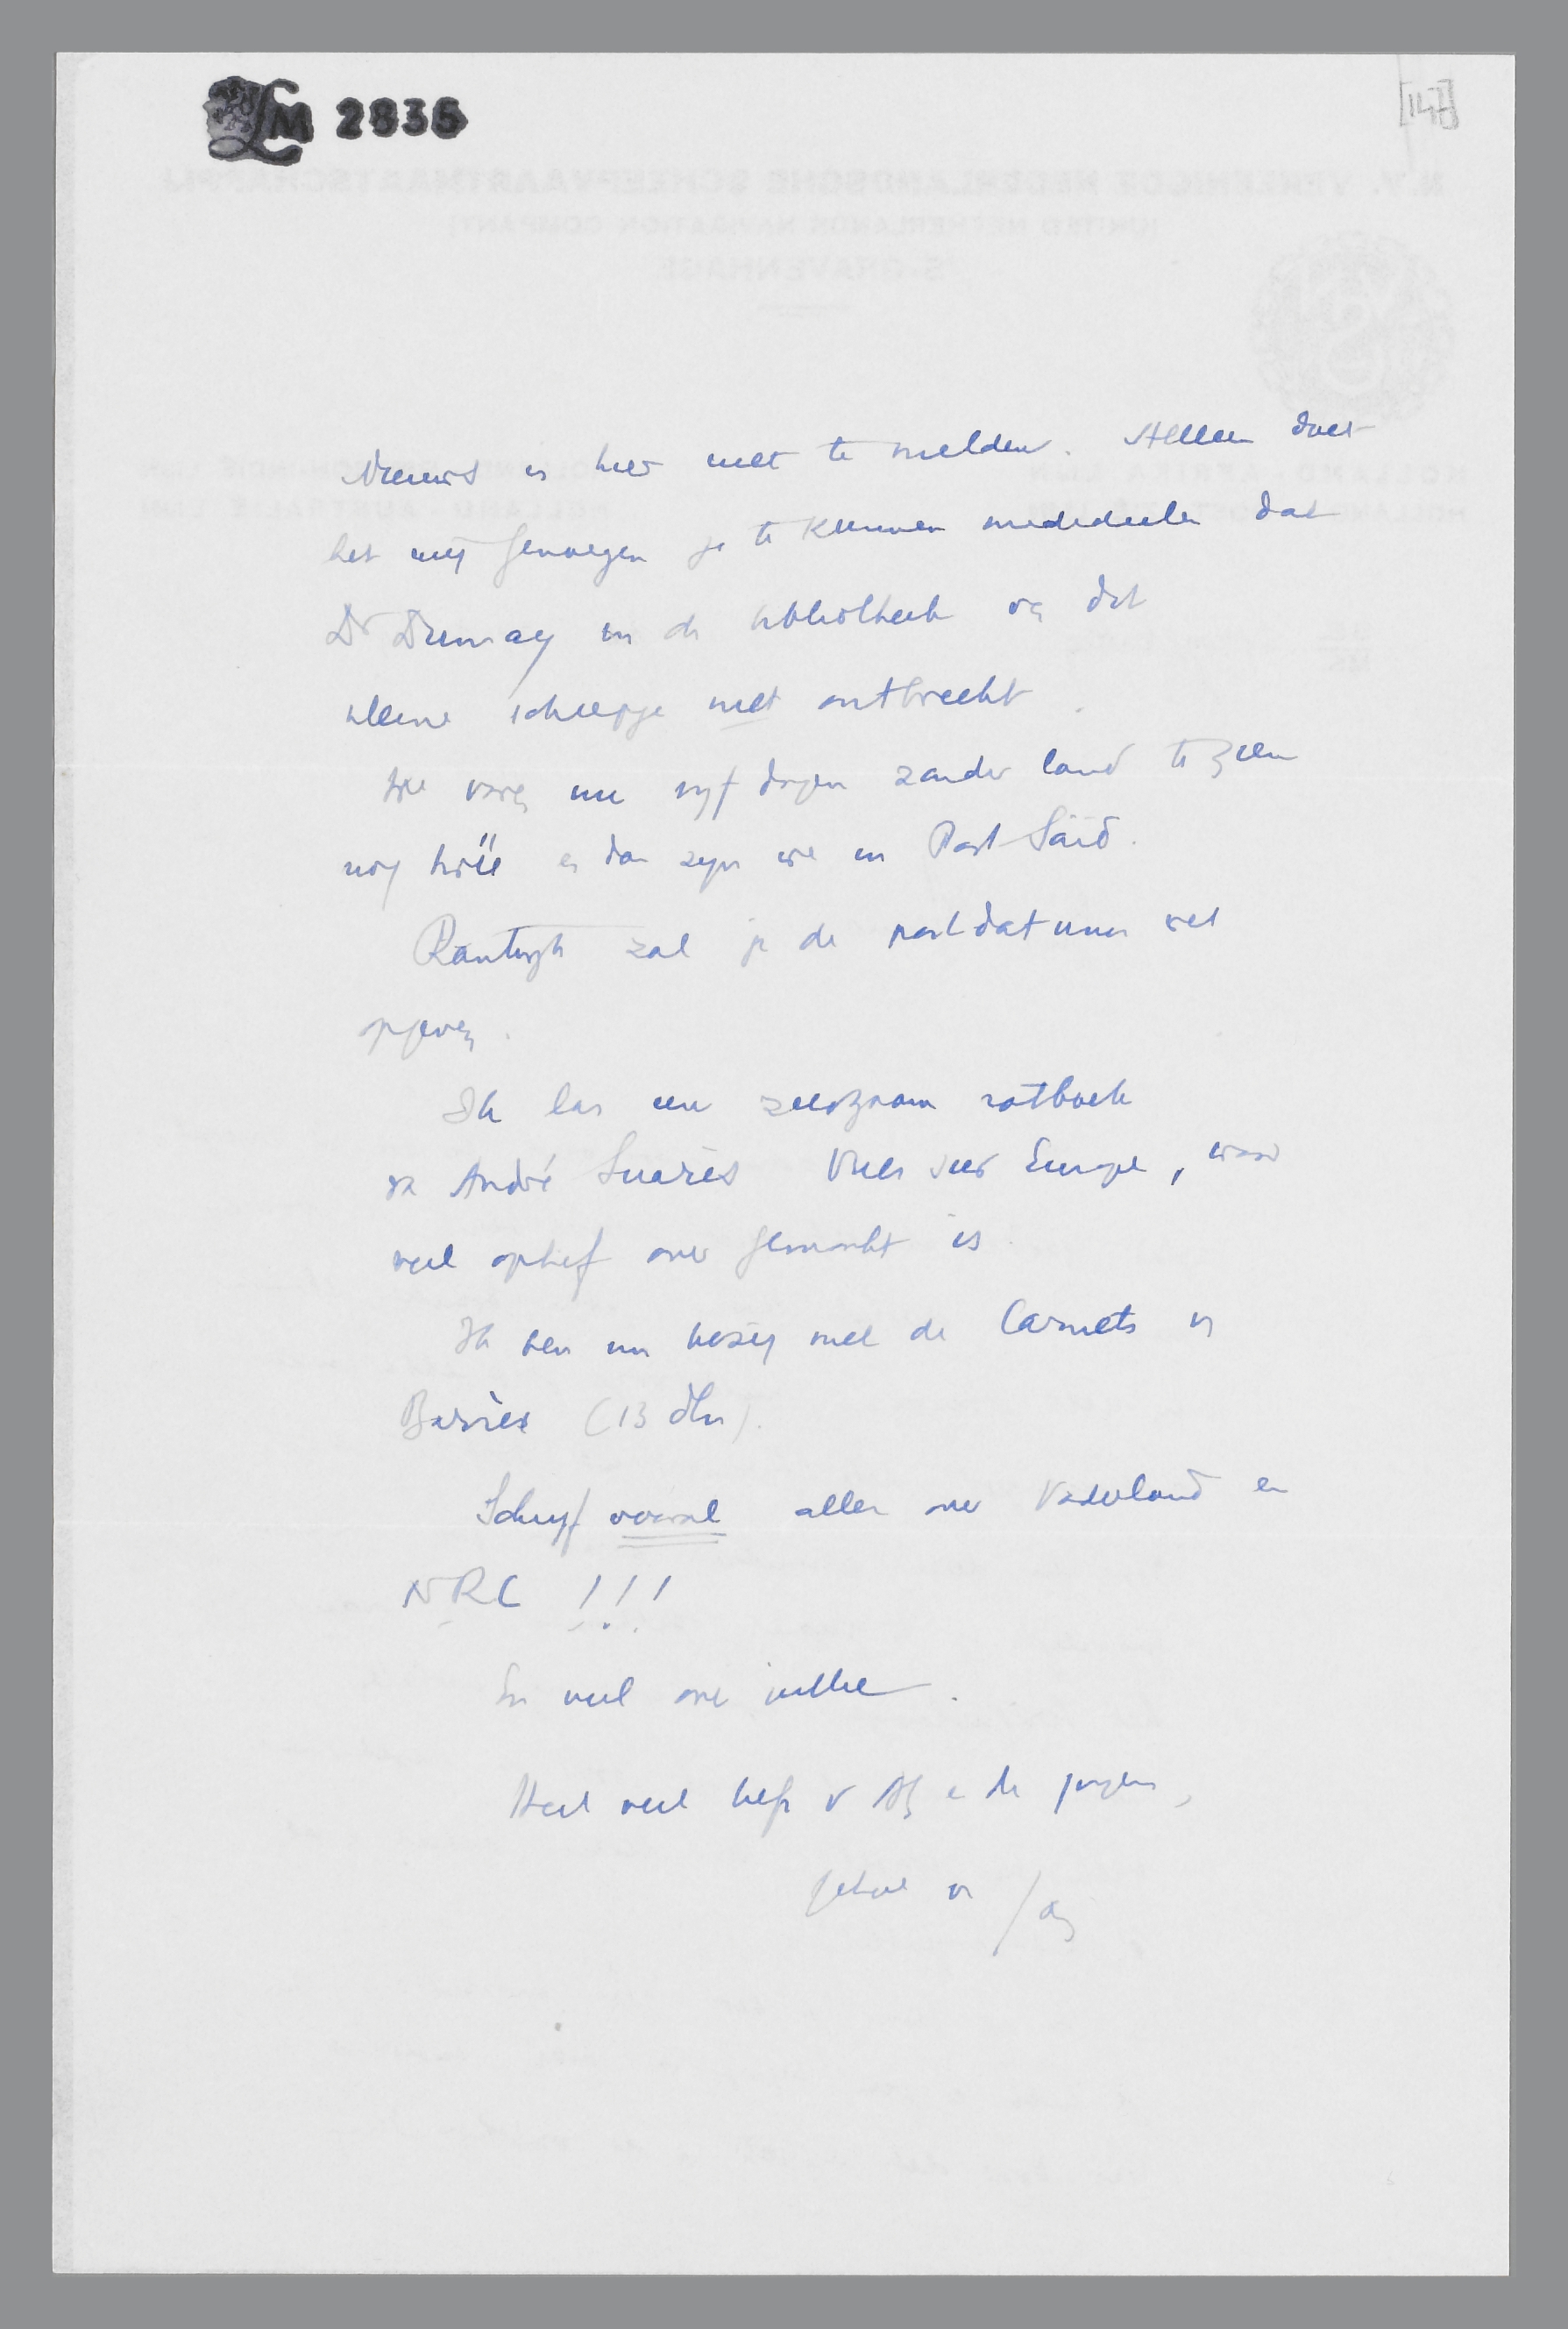 LM 2835
[147]
N.V. VEREENIGDE NEDERLANDSCHE SCHEEPVAARTMAATSCHAPPIJ
(UNITED NETHERLANDS NAVIGATION COMPANY)
'S-GRAVENHAGE
Nieuws is hier niet te melden. Alleen doet
het mij genoegen je te kunnen mededeelen dat
Dr Dumay in de bibliotheek van dit
kleine scheepje niet ontbreekt.
We varen nu vijf dagen zonder land te zien
nog twee en dan zijn we in Port Saïd.
Rantwijk zal je de postdatums wel
opgeven.
Ik las een zeldzaam rotboek
van André Suarès Vues sur Europe, waar
veel ophef over gemaakt is.
Ik ben nu bezig met de Carnets van
Barrès (13 dln).
Schrijf vooral alles over Vaderland en
NRC !!!
En veel over jullie.
Heel veel liefs v Atj en de jongens,
geheel van Jan